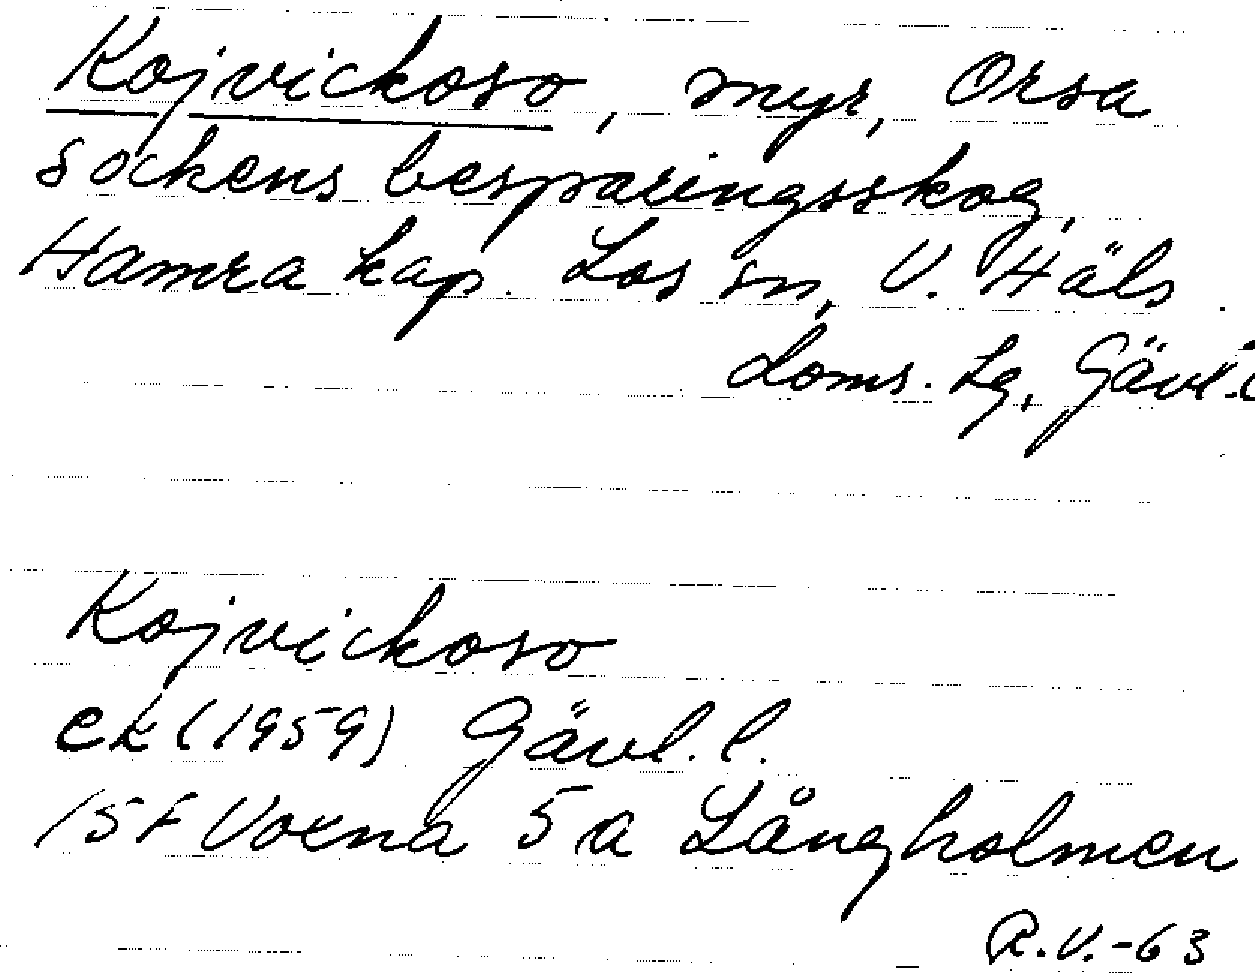 Kojvickoso, myr, Orsa
sockens besparingsskog,
Hamra kap. Los sn, V. Häls.
Doms. Lg, Gävl. l
Kojvickoso
ek (1959) Gävl. l.
15F Voxna 5a Långholmen
R.V.-63